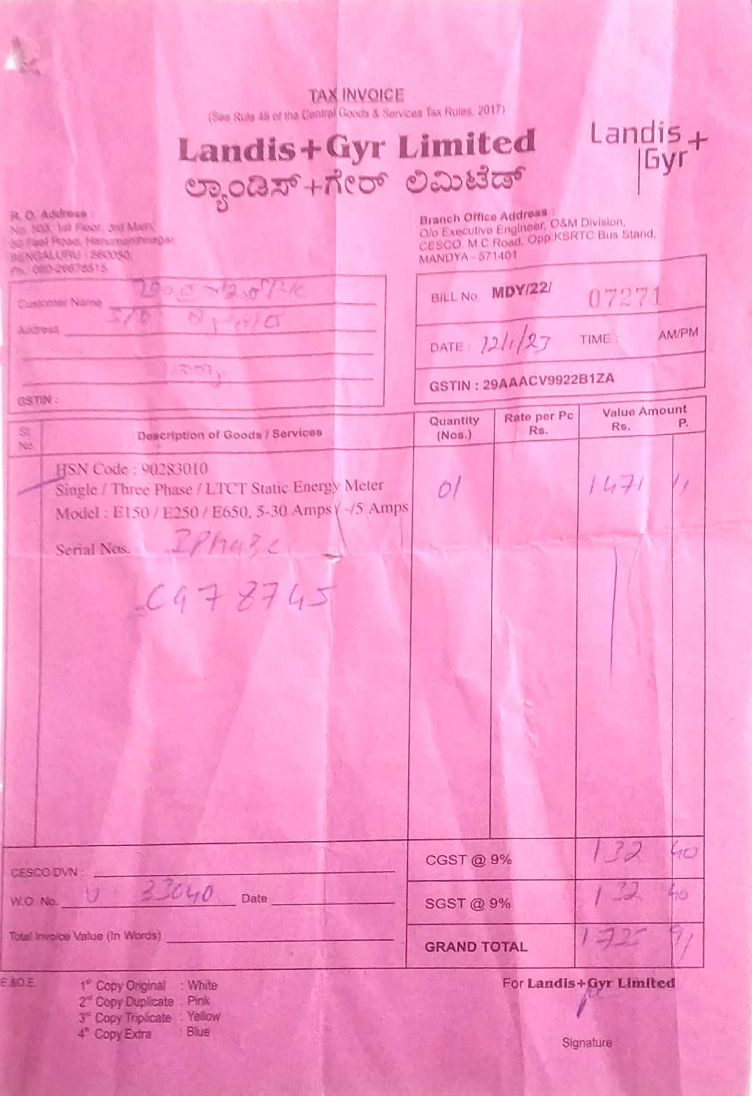 TAX INVOICE
(See Rule 46 of the Central Goods & Services Tax Rules, 2017)
Landis+Gyr Limited
ಲ್ಯಾಂಡಿಸ್+ಗೇರ್ ಲಿಮಿಟೆಡ್
Landis+
Gyr
R. O. Address :
No. 503, 1st Floor, 3rd Main,
Hanumanthnagar,
BENGALURU - 560050.
Ph.: 080-26678515
Branch Office Address :
O/o Executive Engineer, O&M Division,
CESCO, M C Road, Opp.KSRTC Bus Stand,
MANDYA - 571401
Customer Name
Address
GSTIN :
BILL No. MDY/22/ 07271
DATE : 12/1/23 TIME : AM/PM
GSTIN : 29AAACV9922B1ZA
Sl. No. Description of Goods / Services Quantity (Nos.) Rate per Pc Rs. Value Amount Rs. P.
HSN Code : 90283010
Single / Three Phase / LTCT Static Energy Meter 01 1471 11
Model : E150 / E250 / E650, 5-30 Amps / -/5 Amps
Serial Nos. 1Phase
C978745
CESCO DVN :
W.O. No. 33040 Date
Total Invoice Value (In Words)
CGST @ 9% 132 40
SGST @ 9% 132 40
GRAND TOTAL 91
E.&O.E.
1st Copy Original : White
2nd Copy Duplicate : Pink
3rd Copy Triplicate : Yellow
4th Copy Extra : Blue
For Landis+Gyr Limited
Signature